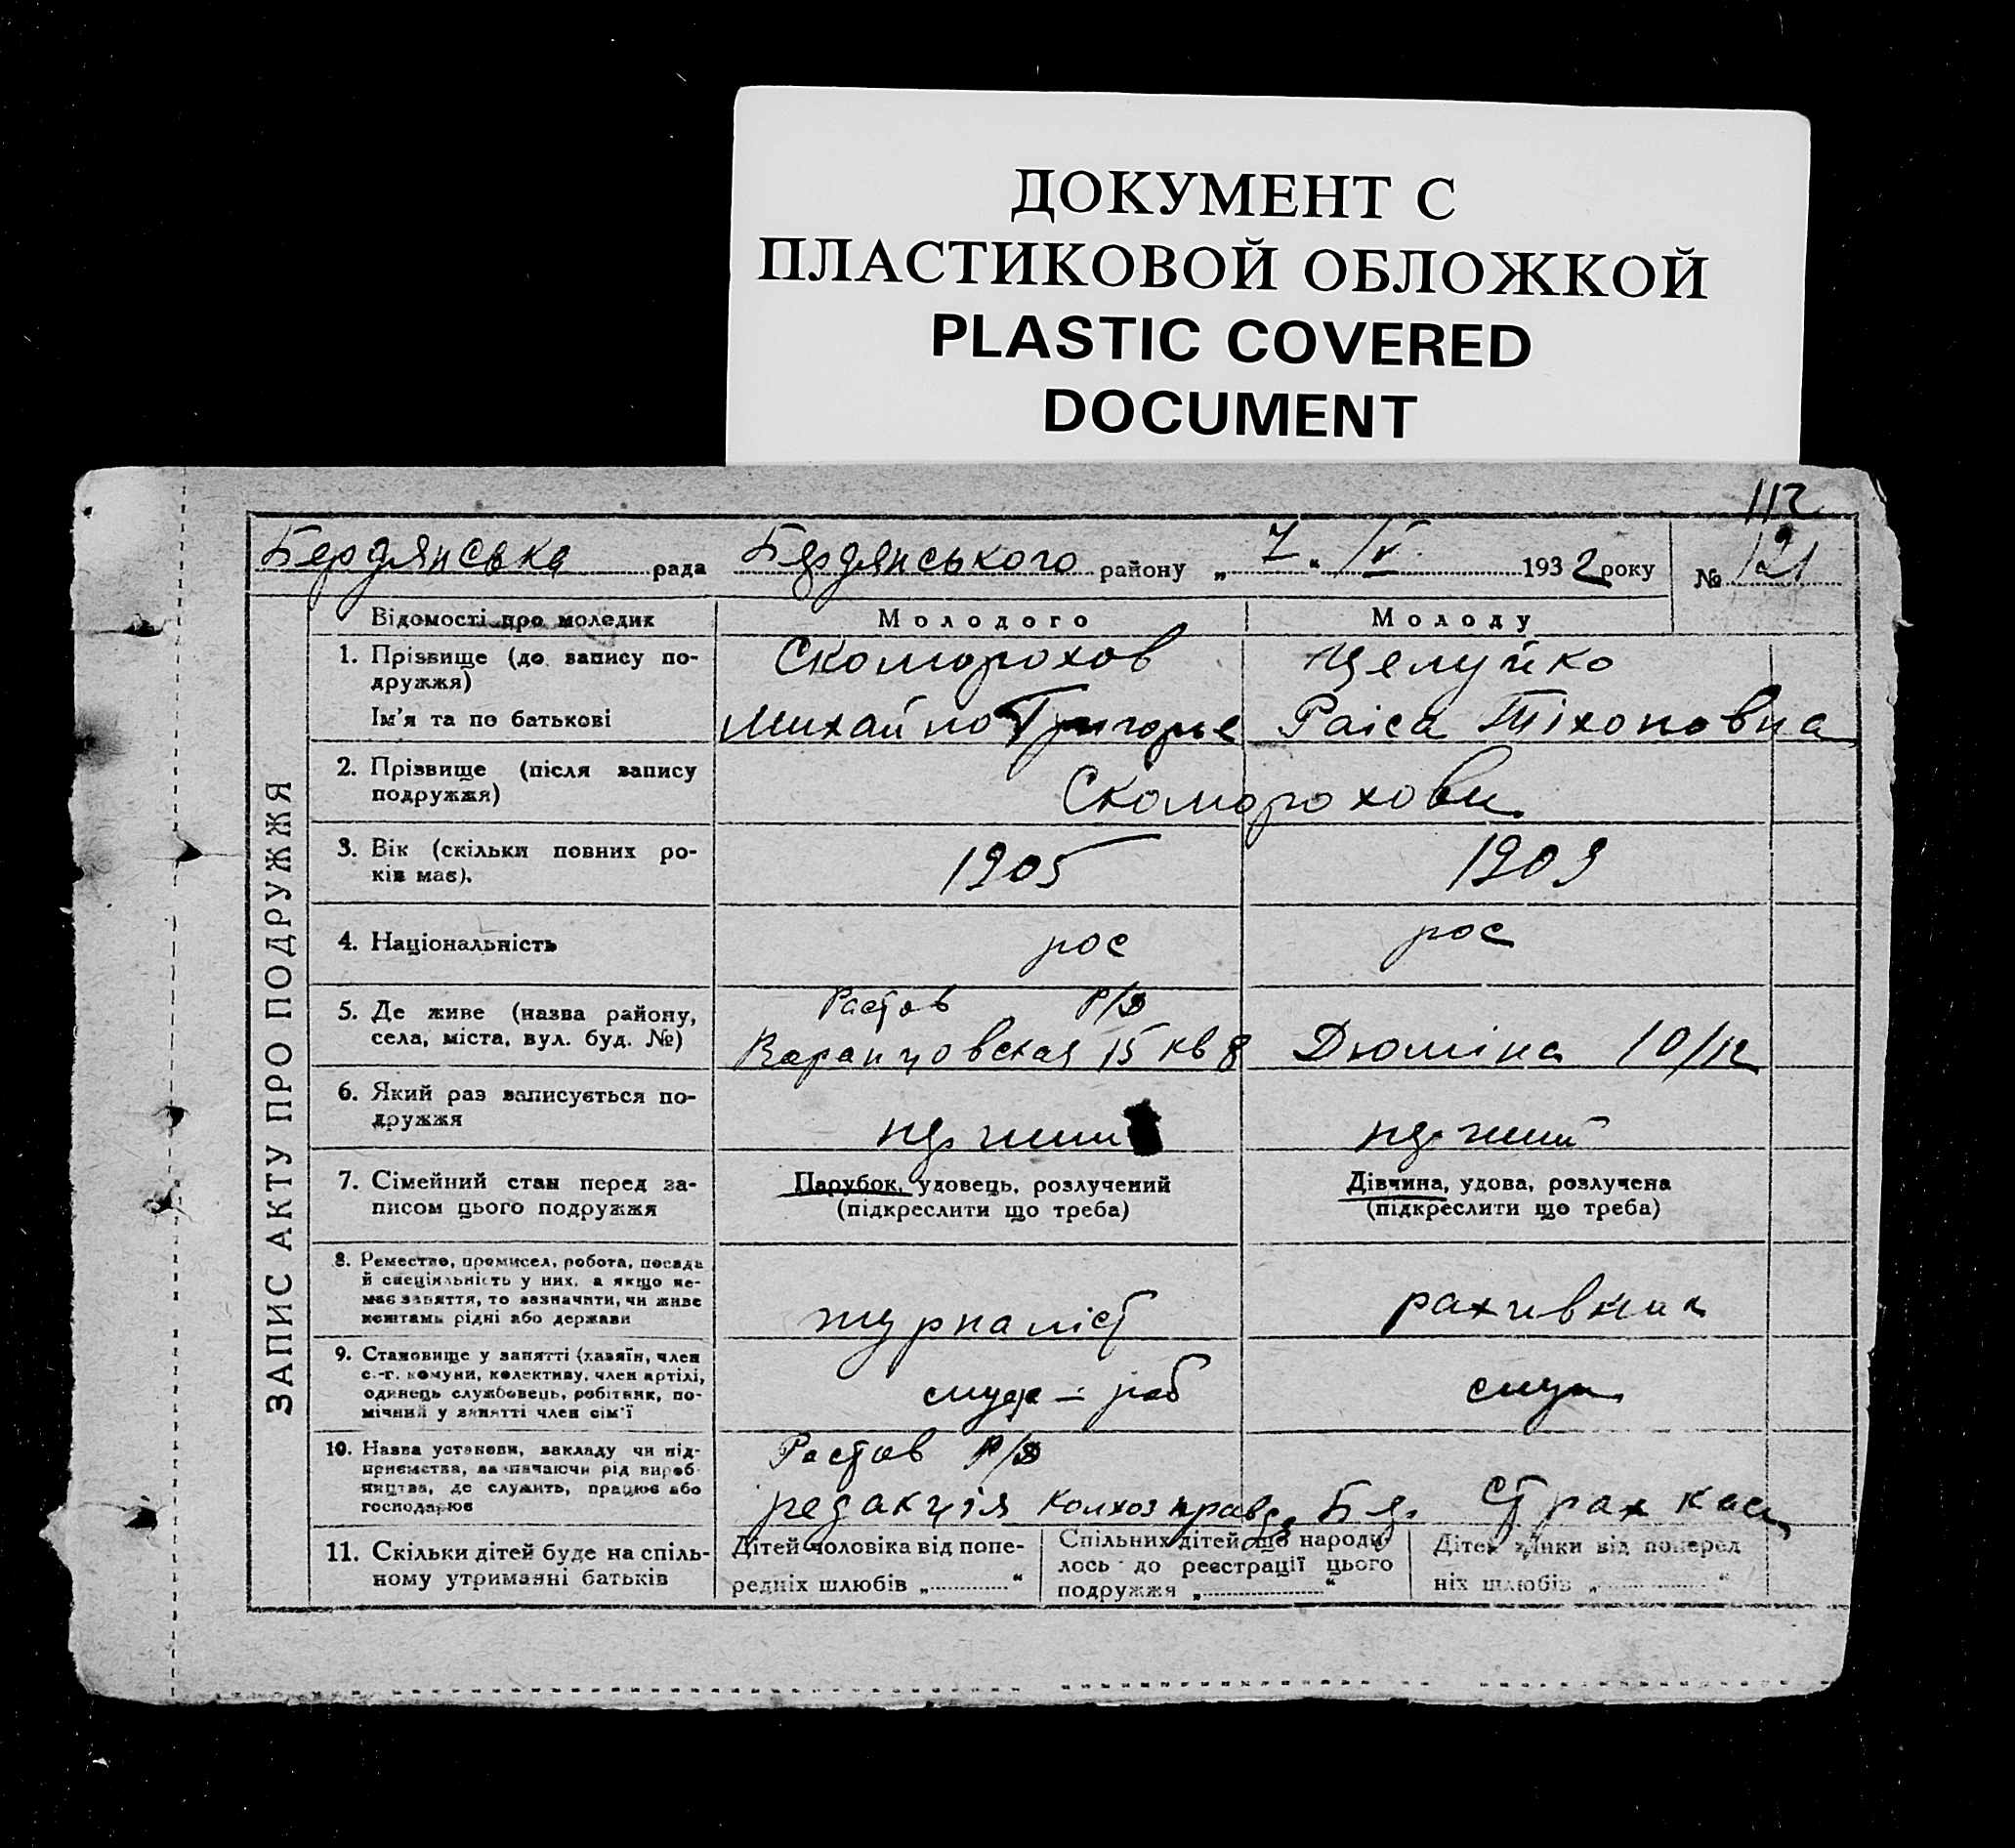 ДОКУМЕНТ С
ПЛАСТИКОВОЙ ОБЛОЖКОЙ
PLASTIC COVERED
DOCUMENT
112
Бердянська рада Бердянського району „ 7 “ IV 1932 року № 121
ЗАПИС АКТУ ПРО ПОДРУЖЖЯ
Відомості про молодик Молодого Молоду
1. Прізвище (до запису по-
дружжя) Скоморохов Целуйко
Ім'я та по батькові Михайло Григорье Раіса Тіхоновна
2. Прізвище (після запису
подружжя) Скоморохови
3. Вік (скільки повних ро-
ків має). 1905 1909
4. Національність рос рос
5. Де живе (назва району,
села, міста, вул. буд. №)
Ростов Р/Д
15 кв 8 Дюміна 10/12
6. Який раз записується по-
дружжя
7. Сімейний стан перед за-
писом цього подружжя
Парубок, удовець, розлучений
(підкреслити що треба)
Дівчина, удова, розлучена
(підкреслити що треба)
8. Ремество, промисел, робота, посада
й спеціяльність у них, а якщо не-
має заняття, то зазначити, чи живе
коштами рідні або держави
журналіст рахивник
9. Становище у занятті (хазяїн, член
с.-г. комуни, колективу, член артілі,
одинець службовець, робітник, по-
мічний у занятті член сім'ї
служ – раб служ
10. Назва установи, закладу чи під-
приємства, зазначаючи рід вироб-
ництва, де служить, працює або
господарює
Ростов Р/Д
редакція Колхоз правда Бд. Страх каса
11. Скільки дітей буде на спіль-
ному утриманні батьків
Дітей чоловіка від попе-
редніх шлюбів „ “
Спільних дітей що народи-
лось до реєстрації цього
подружжя „ “
Дітей жінки від поперед
ніх шлюбів „ “